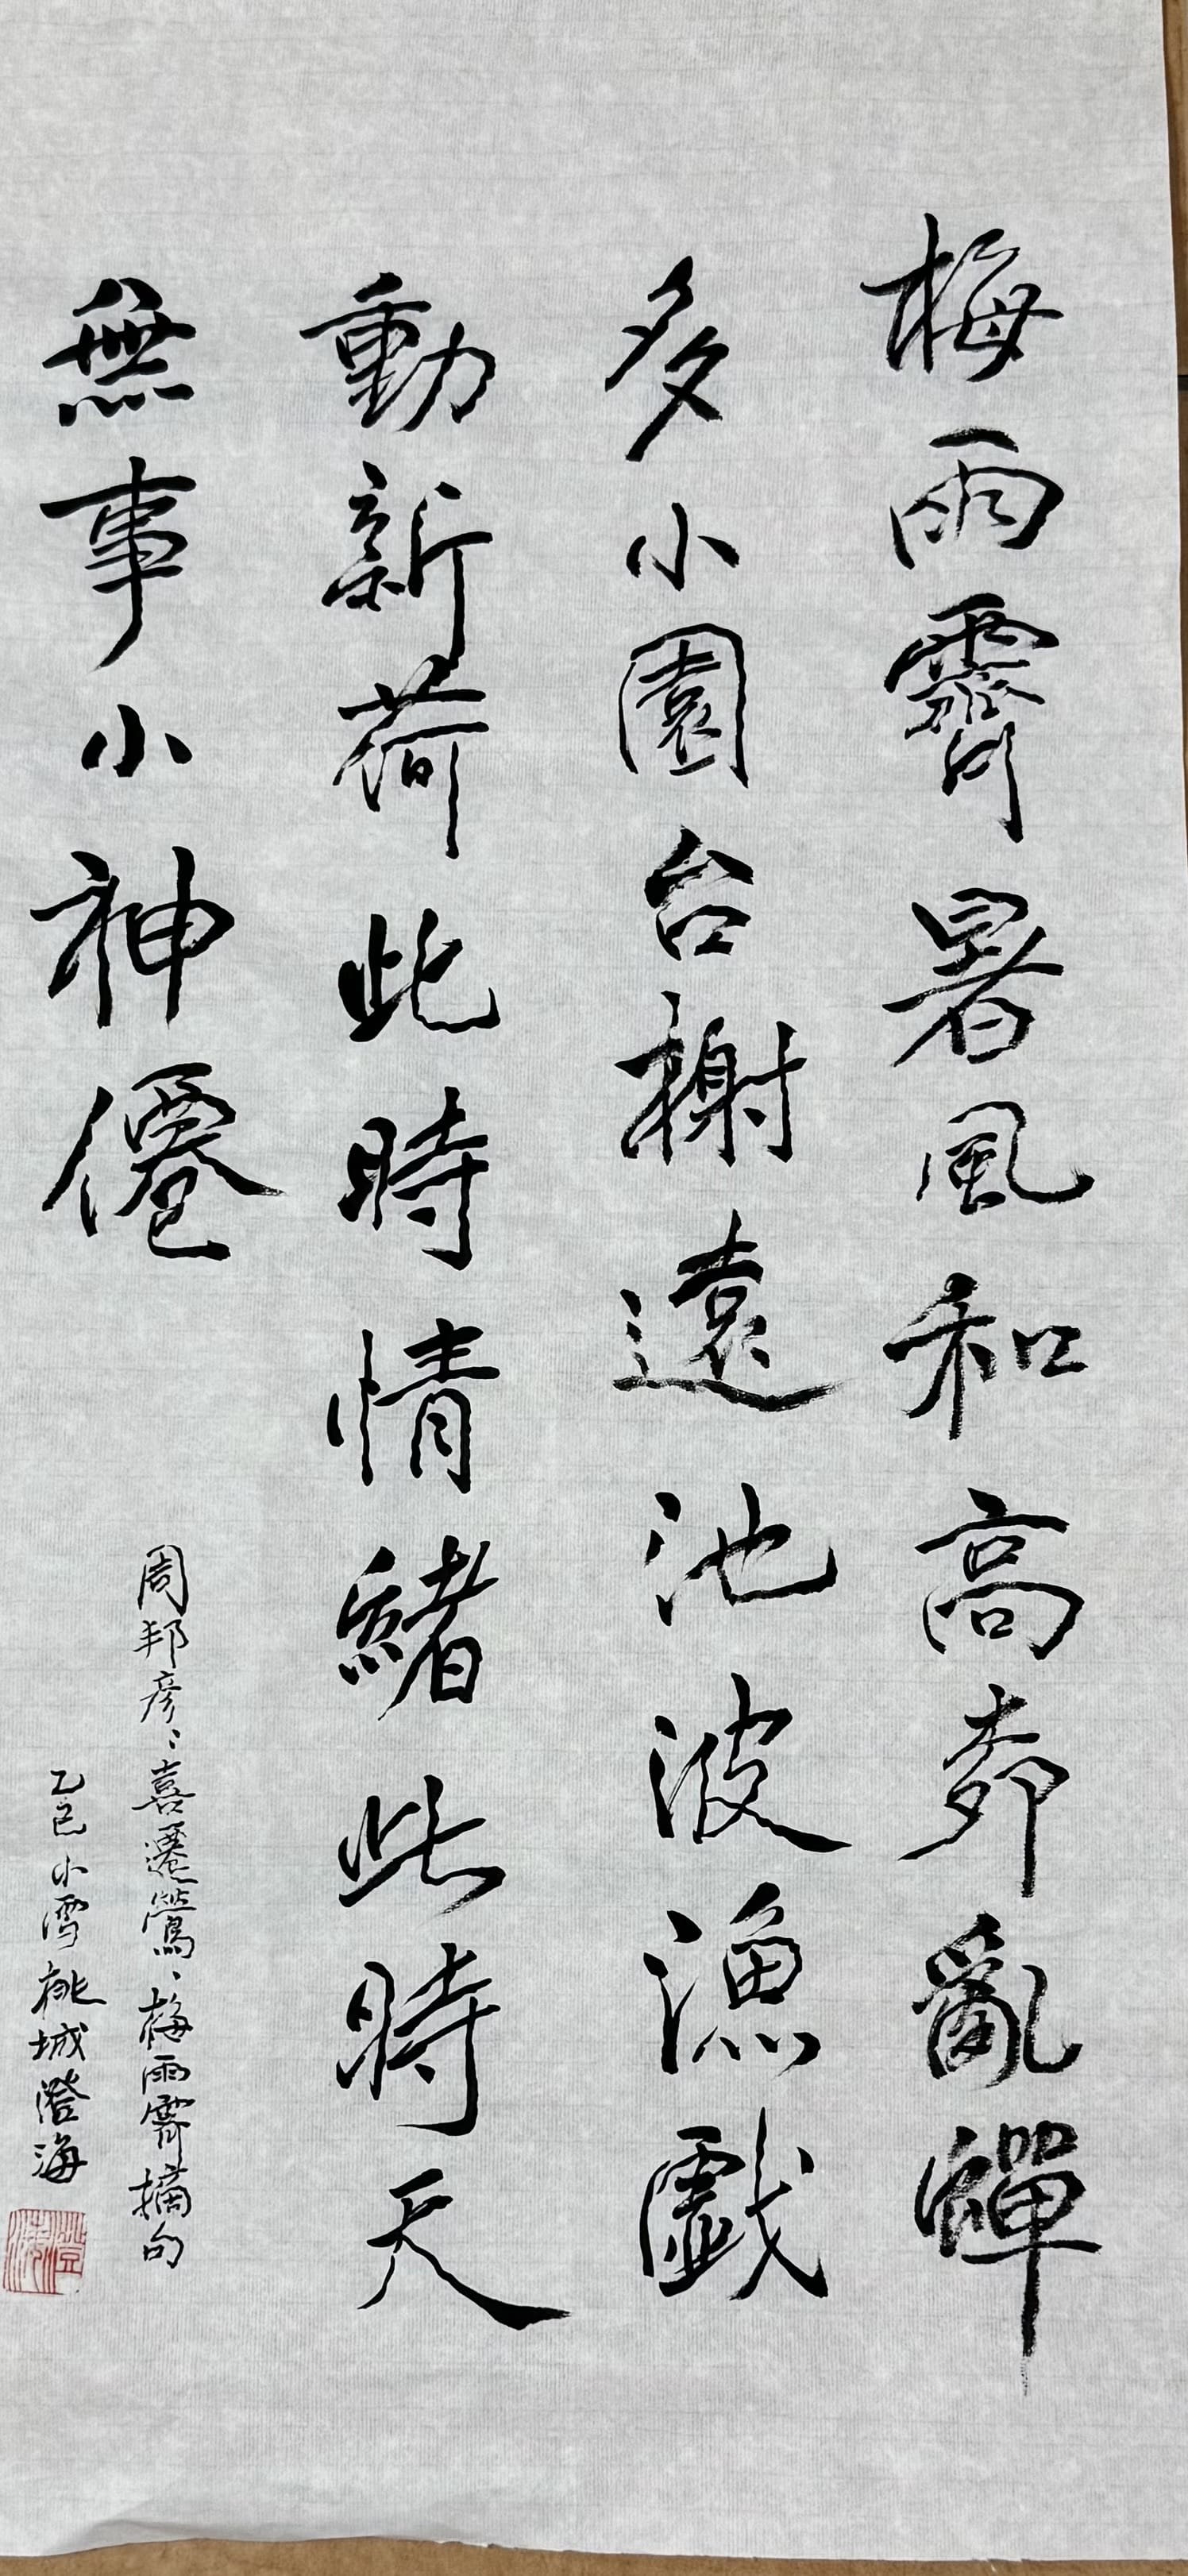 梅雨霽暑風和高郊亂蟬
多小園台榭遠池波漁戲
動新荷此時情緒此時天
無事小神僊
周邦彦、喜遷鶯、梅雨霽摘句
乙巳小雪桃城澄海